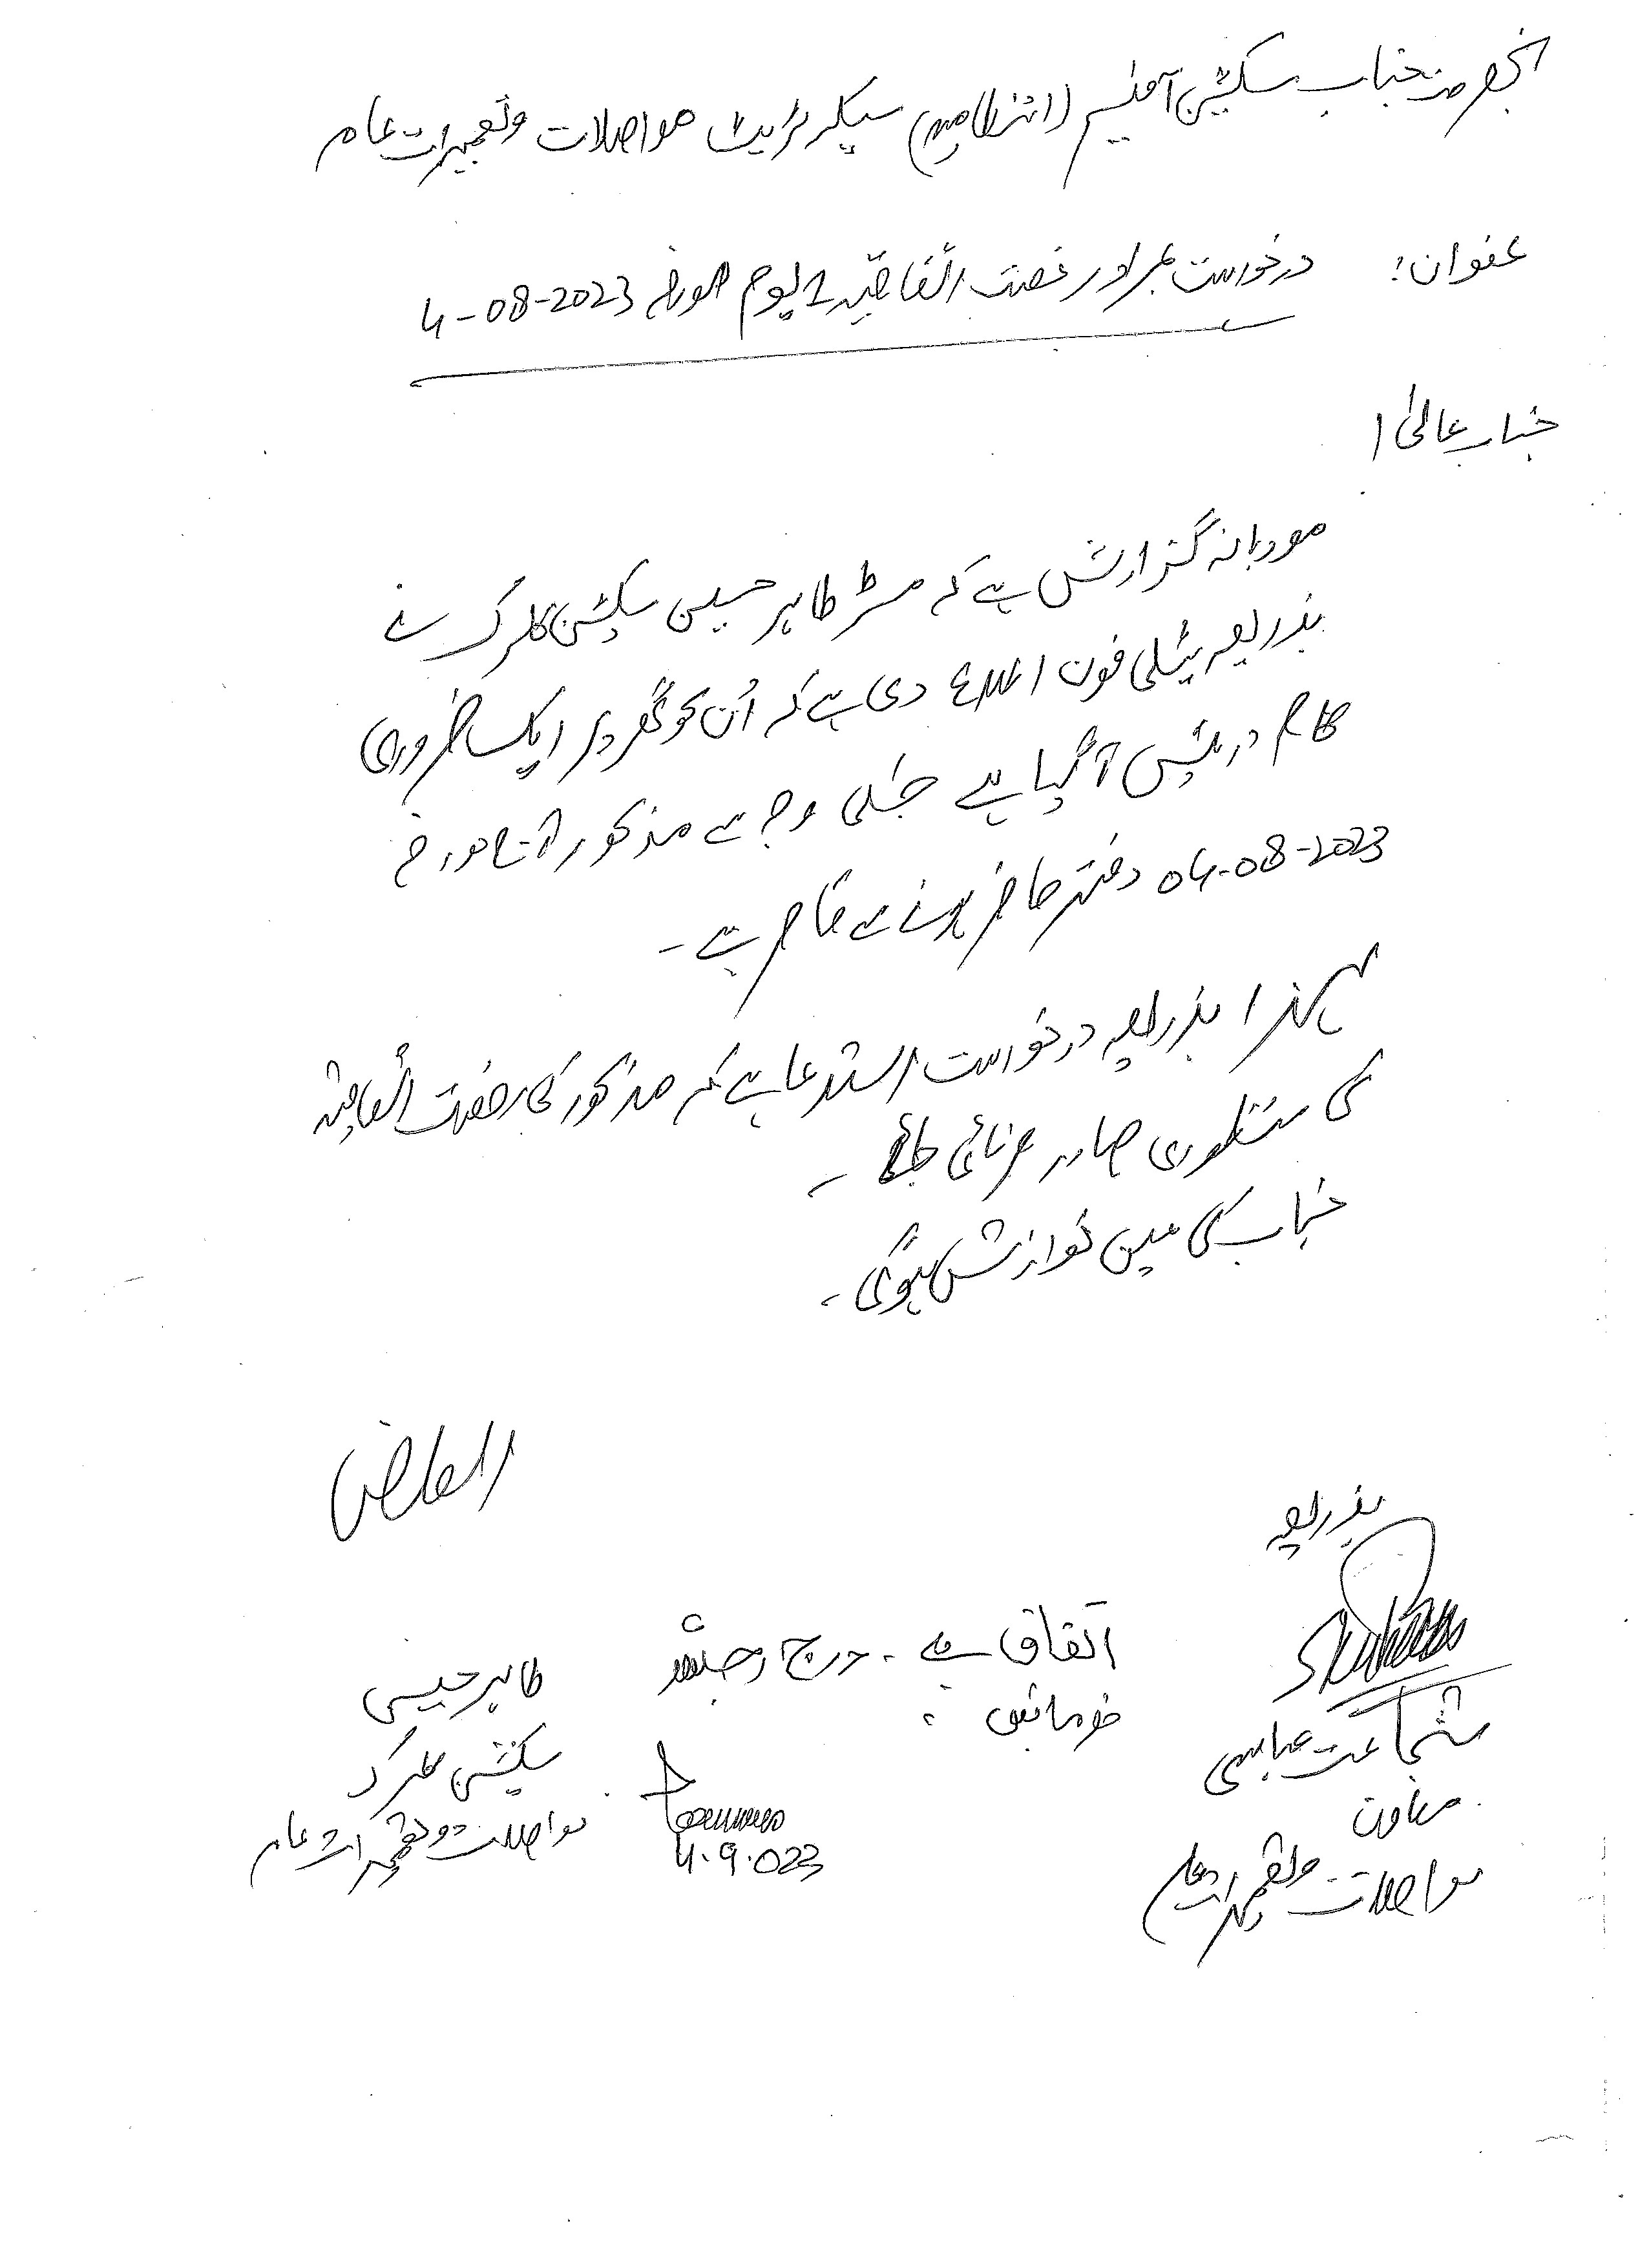 بخدمت جناب سیکشن آفیسر (انتظامیہ) سیکرٹریٹ مواصلات و تعمیرات عامہ
عنوان: درخواست بمراد رخصت اتفاقیہ 1 یوم مورخہ 4-08-2023
جناب عالی!
مودبانہ گزارش ہے کہ مسٹر طاہر حسین سیکشن کلرک نے
بذریعہ ٹیلی فون اطلاع دی ہے کہ اُن کو گھر پر ایک ضروری
کام درپیش آ گیا ہے جسکی وجہ سے مذکور آج مورخہ
04-08-2023 دفتر حاضر ہونے سے قاصر ہے۔
لہٰذا بذریعہ درخواست استدعا ہے کہ مذکور کی رخصت اتفاقیہ
کی منظوری صادر فرمائی جائے۔
جناب کی عین نوازش ہوگی۔
العارض
طاہر حسین
سیکشن کلرک
مواصلات و تعمیرات عامہ
اتفاق ہے۔ درج رجسٹر
فرمائیں۔
4.9.023
بذریعہ
شجاعت عباسی
معاون
مواصلات و تعمیرات عامہ